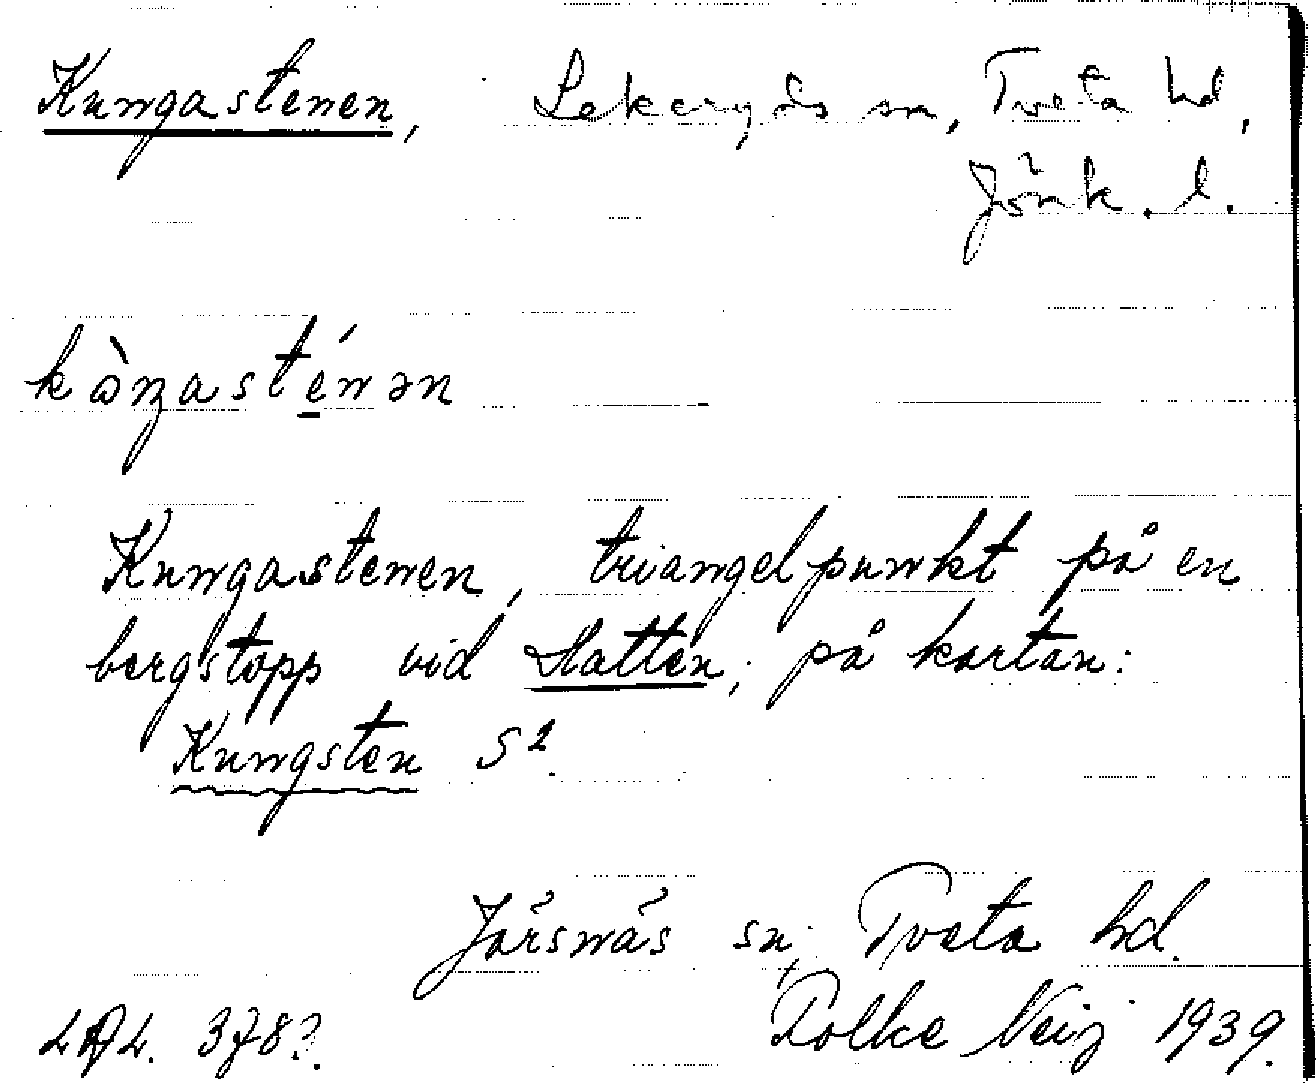 Kungastenen, Lekeryds sn, Tveta hd,
Jönk. l.
kòŋasténən
Kungastenen, triangelpunkt på en
bergstopp vid Slatten; på kartan:
Kungsten S²
Järsnäs sn, Tveta hd.
Folke Neij 1939.
LAL. 3783.